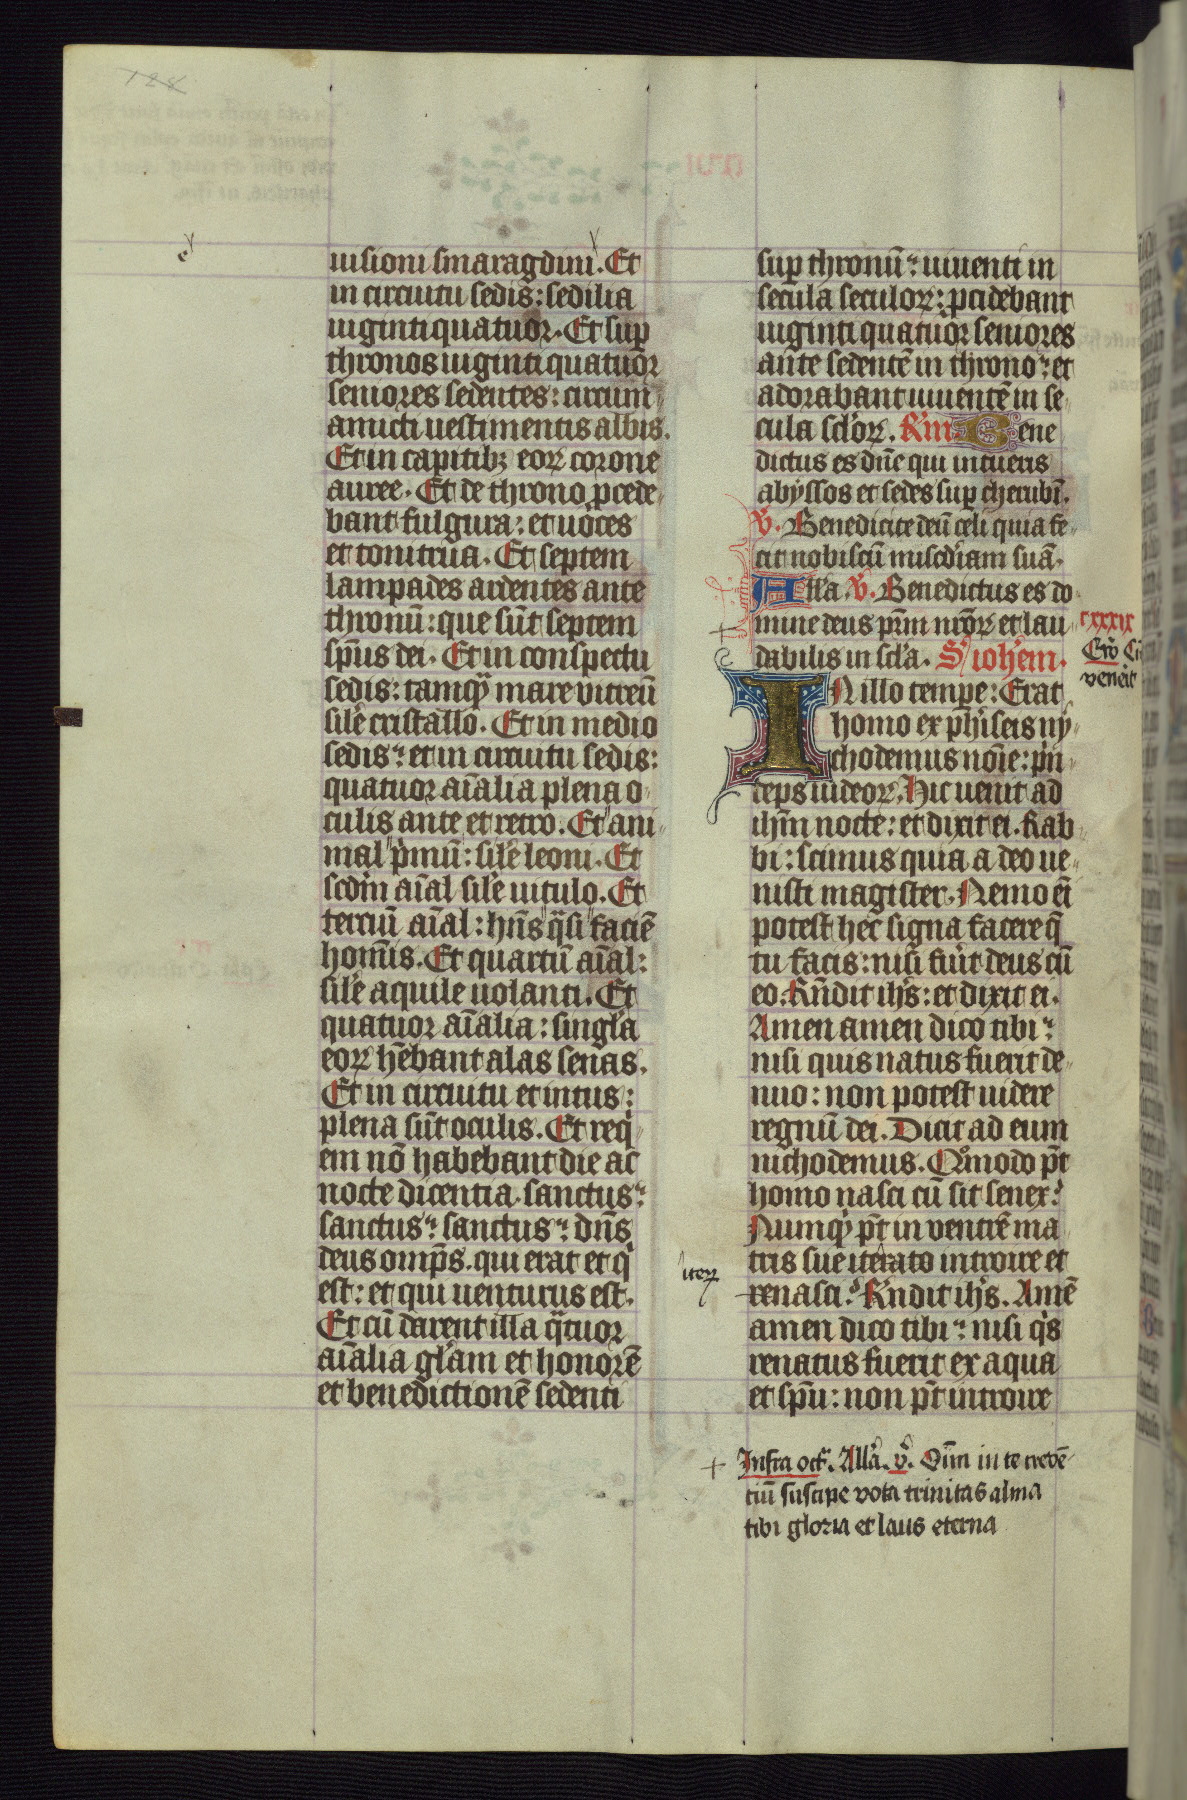 128
uisioni smaragdini. Et
in circuitu sedis: sedilia
uiginti quatuor. Et sup
thronos uiginti quatuor
seniores sedentes: circum
amicti uestimentis albis.
Et in capitibꝫ eoꝝ corone
auree. Et de throno pcede
bant fulgura: et uoces
et tonitrua. Et septem
lampades ardentes ante
thronū: que sūt septem
sp̄us dei. Et in conspectu
sedis: tamqᷓ mare uitreū
sile cristallo. Et in medio
sedis: et in circuitu sedis:
quatuor aīalia plena o
culis ante et retro. Et ani
mal pͥmū: sile leoni. Et
scdm aīal sile uitulo. Et
terciū aīal: hn̄s qᷓsi faciē
homīs. Et quartū aīal:
sile aquile uolanti. Et
quatuor aīalia: singla
eoꝝ hēbant alas senas.
Et in circuitu et intus:
plena sūt oculis. Et reqͥ
em nō habebant die ac
nocte dicentia. sanctus:
sanctus: sanctus: dn̄s
deus omp̄s. qui erat et qͥ
est: et qui uenturus est.
Et cū darent illa qᷓtuor
aīalia gl̄am et honorē
et benedictionē sedenti
sup thronū: uiuenti in
secula seculoꝝ: pcidebant
uiginti quatuor seniores
ante sedentē in throno: et
adorabant uiuentē in se
cula sc̄loꝝ. R̄m Bene
dictus es dn̄e qui intueris
abyssos et sedes sup cherubī.
V̄. Benedicite deū celi quia fe
cit nobiscū misc̄diam suā.
Alla. V̄. Benedictus es do
mine deus pr̄m nr̄oꝝ et lau
dabilis in sc̄la. S. ioh̄em.
IN illo tempe: Erat
homo ex ph̄iseis ny
chodemus noīe: pͥn
ceps iudeoꝝ. Hic uenit ad
ih̄m nocte: et dixit ei. Rab
bi: scimus quia a deo ue
nisti magister. Nemo eī
potest hec signa facere qͥ
tu facis: nisi fuͥit deus cū
eo. Rn̄dit ih̄s: et dixit ei.
Amen amen dico tibi:
nisi quis natus fuerit de
nuo: non potest uidere
regnū dei. Dicit ad eum
nichodemus. Qͦmodo pt̄
homo nasci cū sit senex?
Numqͥ pt̄ in ventrē ma
tris sue iterato introire et
renasci? Rn̄dit ih̄s. Amē
amen dico tibi: nisi qͥs
renatus fuerit ex aqua
et sp̄u: non pt̄ introire
cxxxix
veneīt
iteꝝ
Infra oct̄. Allā. v̄. Oīm in te credē
tiū suscipe vota trinitas alma
tibi gloria et laus eterna